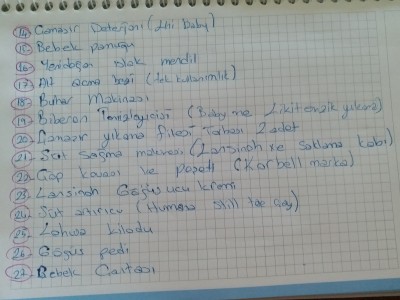 14- Çamaşır Deterjanı (Uni Baby)
15- Bebek pamuğu
16- Yenidoğan ıslak mendil
17- Alt açma bezi (tek kullanımlık)
18- Buhar Makinası
19- Biberon Temizleyicisi (Baby me Likit emzik yıkama)
20- Çamaşır yıkama filesi Torbası 2 adet
21- Süt Sağma makinesi (Lansinoh ve saklama kabı)
22- Çöp kovası ve poşeti (Korbell marka)
23- Lansinoh Göğüs ucu kremi
24- Süt artırıcı (Humana still tee çay)
25- Lohusa kilodu
26- Göğüs pedi
27- Bebek Çantası